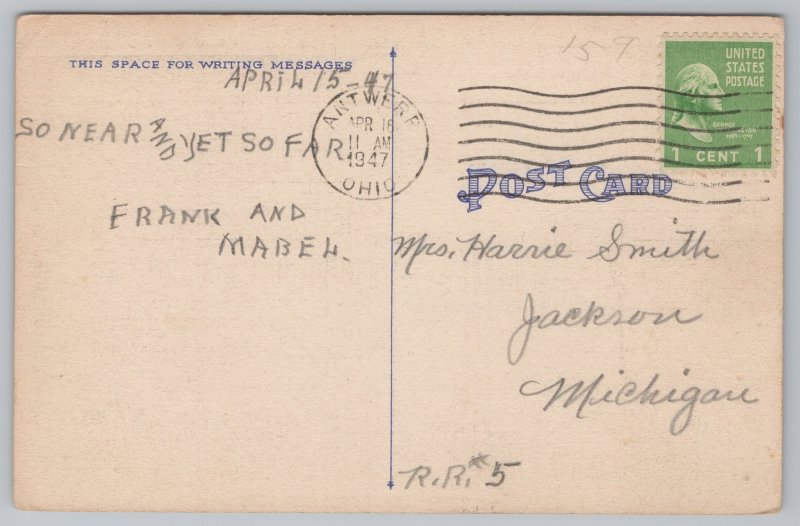 THIS SPACE FOR WRITING MESSAGES
APRIL 15-47
SO NEAR AND YET SO FAR.
FRANK AND
MABEL.
159
ANTWERP
APR 16
11 AM
1947
OHIO
UNITED
STATES
POSTAGE
GEORGE
1 CENT 1
POST CARD
Mrs. Harrie Smith
Jackson
Michigan
R.R.# 5